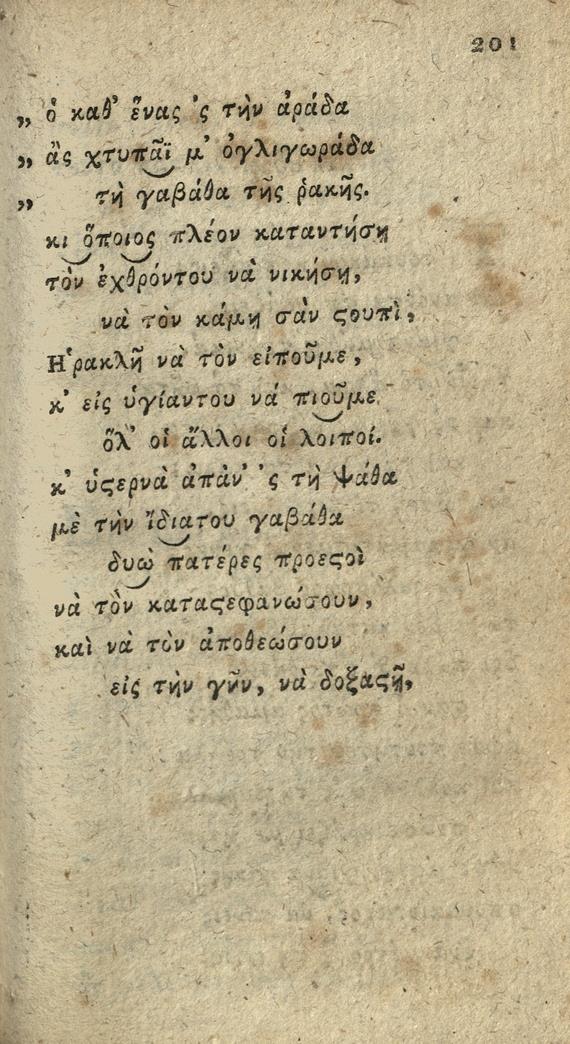 201
„ ὁ καθ' ἕνας 'ς τὴν ἀράδα
„ ἂς χτυπᾶϊ μ' ὀγλιγωράδα
„ τὴ γαβάθα τῆς ῥακῆς.
κι ὅποιος πλέον καταντήσῃ
τὸν ἐχθρόντου νὰ νικήσῃ,
νὰ τὸν κάμῃ σὰν ϛουπὶ,
Ἡρακλῆ νὰ τὸν εἰποῦμε,
κ' εἰς ὑγίαντου νά πιοῦμε
ὅλ' οἱ ἄλλοι οἱ λοιποί.
κ' ὑϛερνὰ ἀπὰν' 'ς τὴ ψάθα
μὲ τὴν ἴδιατου γαβάθα
δυὼ πατέρες προεϛοὶ
νὰ τὸν καταϛεφανώσουν,
καὶ νὰ τὸν ἀποθεώσουν
εἰς τὴν γῆν, νὰ δοξαϛῇ,